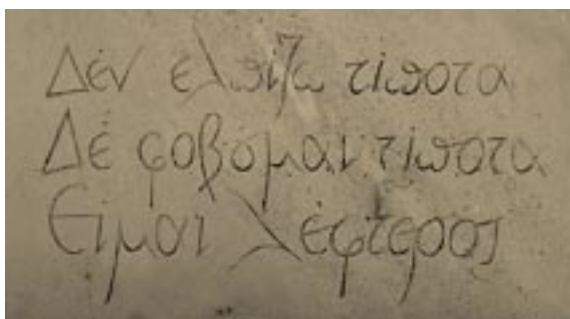 Δέν ελπίζω τίποτα
Δέ φοβᾶμαι τίποτα
Είμαι λέφτερος